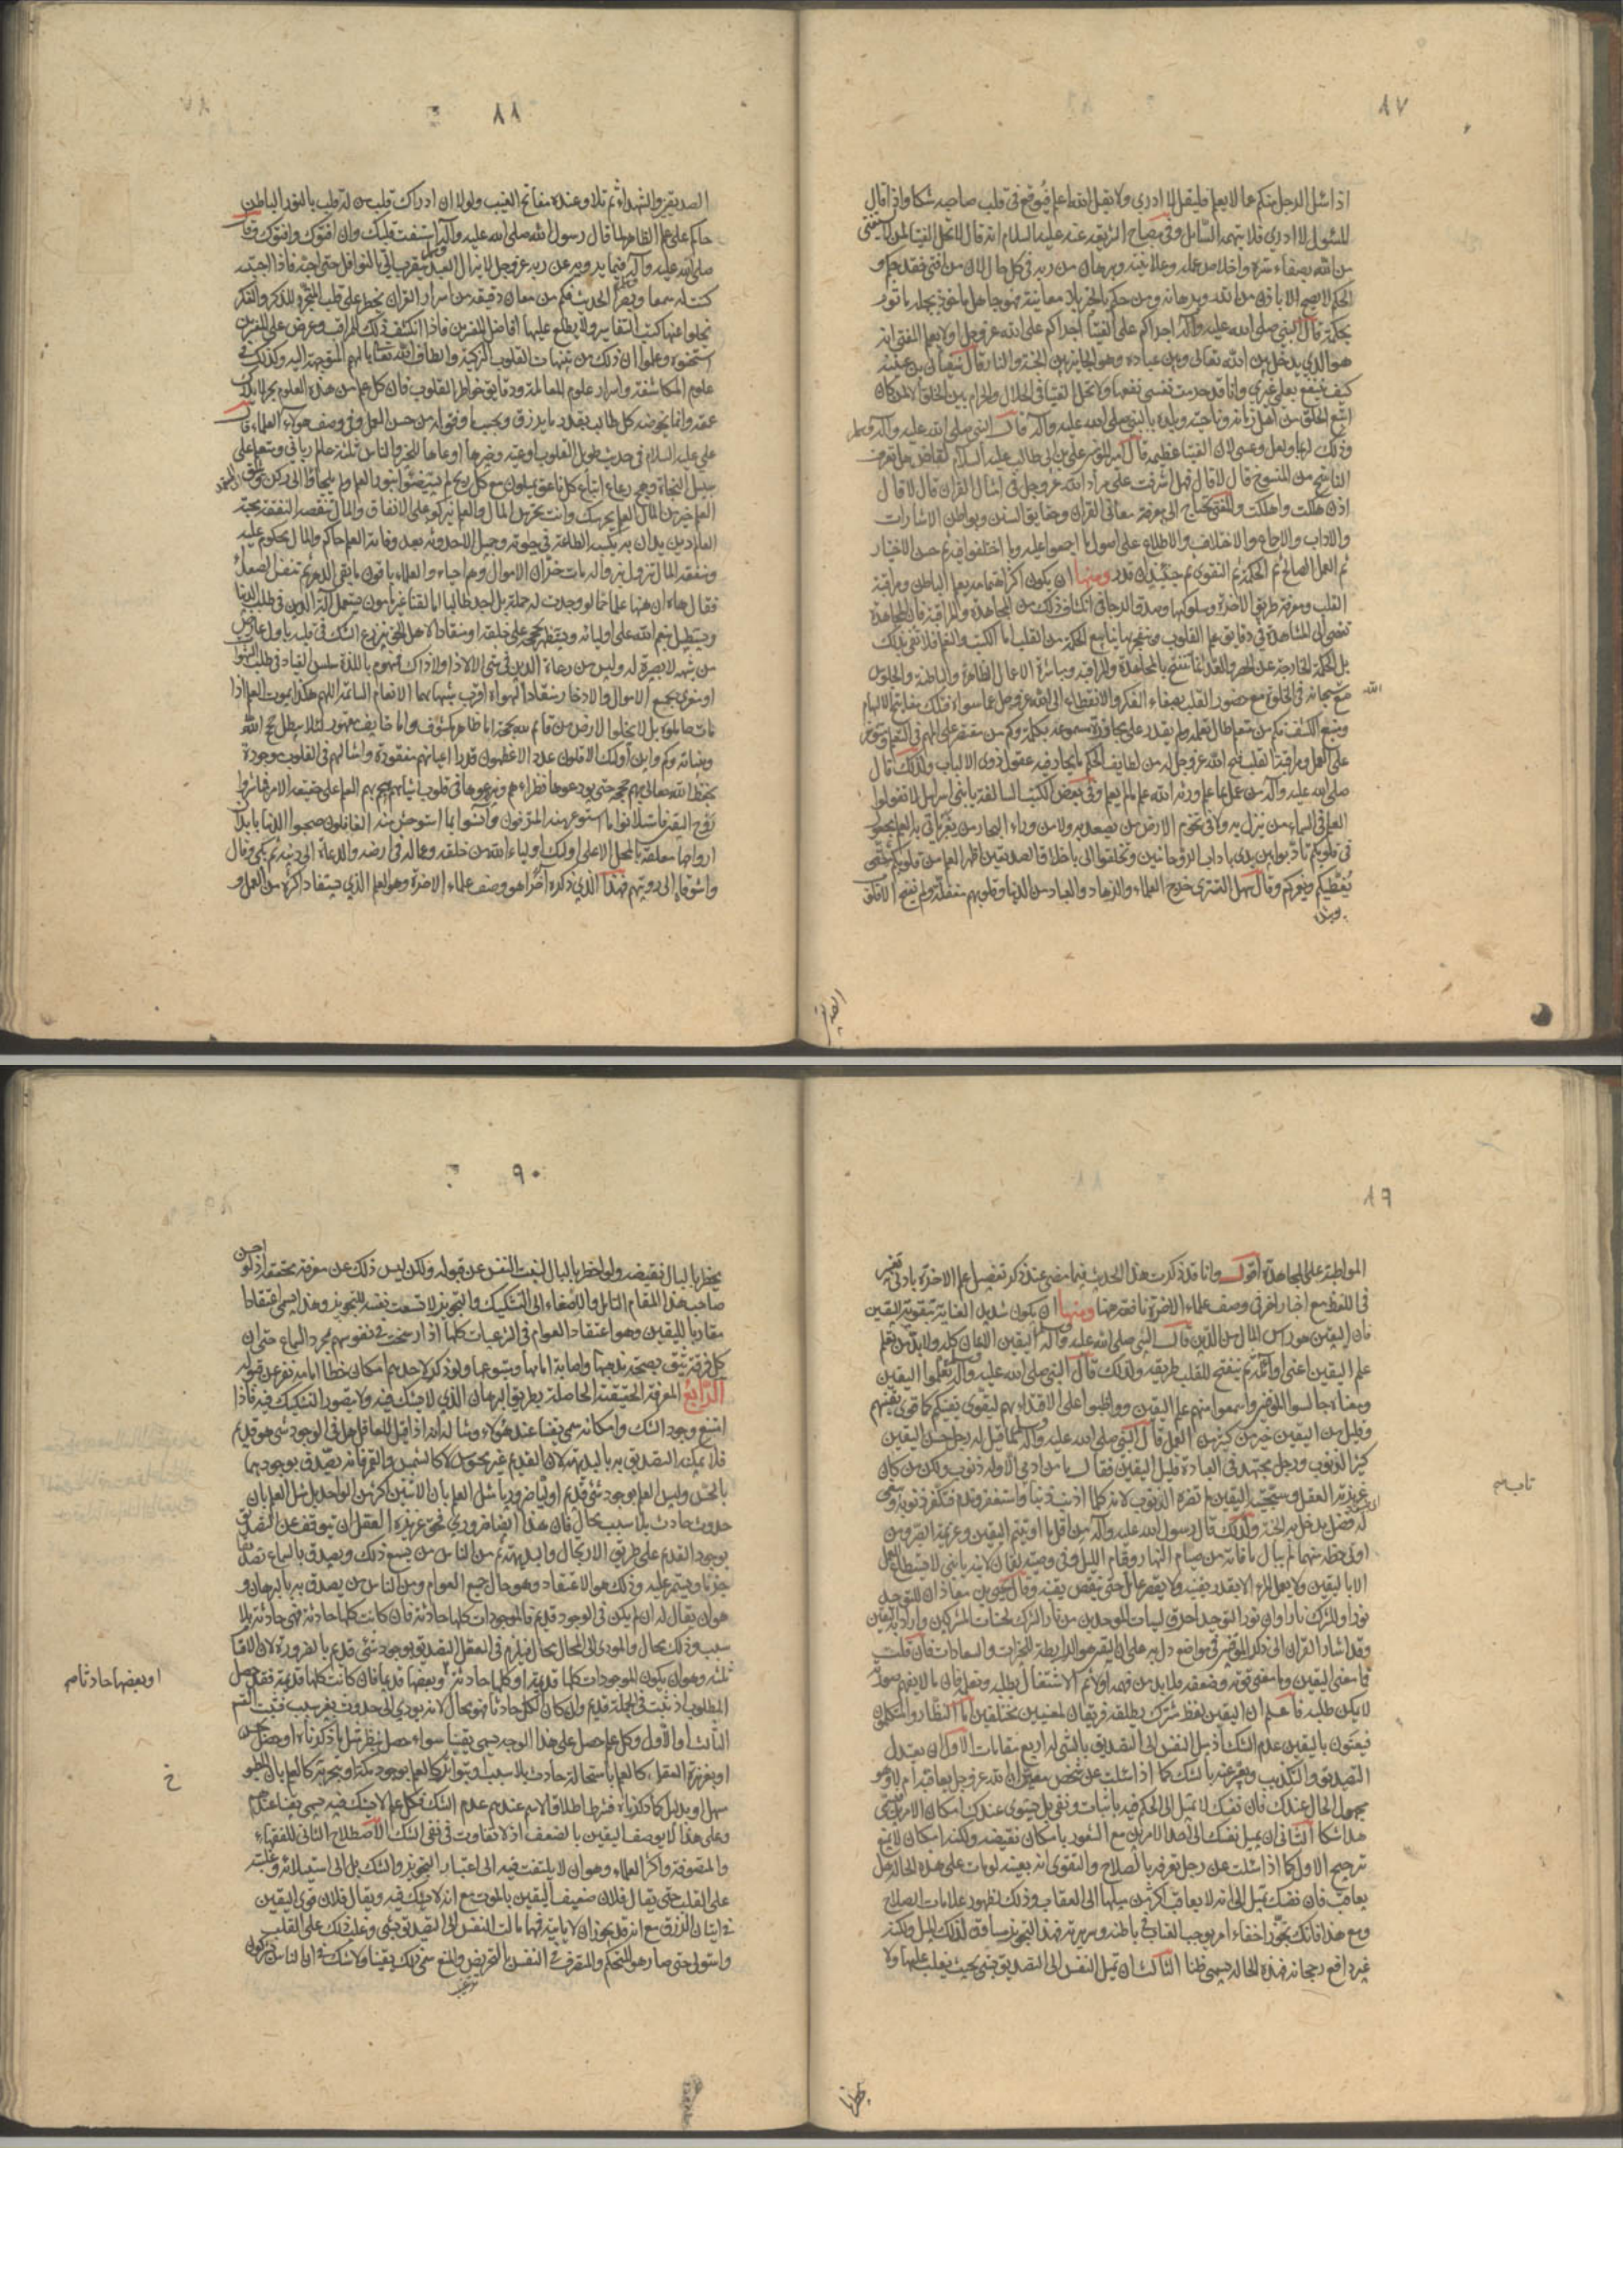 ٨٧
اذا سئل الرجل منكم عما لا يعلم فليقل لا ادري ولا يقل الله اعلم فيوقع في قلب صاحبه شكا واذا قال
المسئول لا ادري فلا يتهمه السائل وفي مصباح الشريعة عنه عليه السلام انه قال لا تحل الفتيا لمن لا يستفتي
من الله بصفاء سره واخلاص عمله وعلانيته وبرهان من ربه في كل حال لان من افتى فقد حكم و
الحكم لا يصح الا باذن من الله وبرهانه ومن حكم بالخبر بلا معاينة فهو جاهل ماخوذ بجهله ماثوم
بحكمه قال النبي صلى الله عليه وآله اجراكم على الفتيا اجراكم على الله عز وجل اولا يعلم المفتي انه
هو الذي يدخل بين الله تعالى وبين عباده وهو الحايز بين الجنة والنار قال سفيان بن عيينة
كيف ينتفع بعلمي غيري وانا قد حرمت نفسي نفعها ولا تحل الفتيا في الحلال والحرام بين الخلق الا لمن كان
اتبع الخلق من اهل زمانه وناحيته وبلده بالنبي صلى الله عليه وآله قال النبي صلى الله عليه وآله وسلم
وذلك لربما ولعل وعسى لان الفتيا عظيمة قال امير المؤمنين علي بن ابي طالب عليه السلام لقاض هل تعرف
الناسخ من المنسوخ قال لا قال فهل اشرفت على مراد الله عز وجل في امثال القران قال لا قال
اذن هلكت واهلكت والمفتي يحتاج الى معرفة معاني القران وحقايق السنن وبواطن الاشارات
والاداب والاجماع والاختلاف والاطلاع على اصول ما اجمعوا عليه وما اختلفوا فيه ثم حسن الاختيار
ثم العمل الصالح ثم الحكمة ثم التقوى ثم حينئذ ان قدر ومنها ان يكون اكثر اهتمامه بعلم الباطن ومراقبة
القلب ومعرفة طريق الاخرة وسلوكها وصدق الرجا في انكشاف ذلك من المجاهدة والمراقبة فان المجاهدة
تفضي الى المشاهدة في دقايق علم القلوب وتنفجر بها ينابيع الحكمة من القلب اما الكتب والتعلم فلا تفي بذلك
بل الحكمة الخارجة عن الحصر والعد انما تنفتح بالمجاهدة والمراقبة ومباشرة الاعمال الظاهرة والباطنة والجلوس
مع سبحانه في الخلوة مع حضور القلب بصفاء الفكر والانقطاع الى الله عز وجل عما سواه فذلك مفتاح الالهام
الله
ومنبع الكشف فكم من متعلم طال تعلمه ولم يقدر على مجاوزة مسموعه بكلمة وكم من مقتصر على المهم في التعلم ومتوفر
على العمل ومراقبة القلب فتح الله عز وجل له من لطايف الحكم ما يحار فيه عقول ذوي الالباب ولذلك قال
صلى الله عليه وآله من عمل بما علم ورثه الله علم ما لم يعلم وفي بعض الكتب السالفة يا بني اسرائيل لا تقولوا
العلم في السماء من ينزل به ولا في تخوم الارض من يصعد به ولا من وراء البحار من يعبر ياتي به العلم مجعول
في قلوبكم تادبوا بين يدي باداب الروحانيين وتخلقوا الي باخلاق الصديقين اظهر العلم من قلوبكم حتى
يغطيكم ويغمركم وقال سهل التستري خرج العلماء والزهاد والعباد من الدنيا وقلوبهم مقفلة ولم تفتح الا قلوب
٨٨
الصديقين والشهداء ثم تلا وعنده مفاتح الغيب ولولا ان ادراك قلب من له قلب بالنور الباطن
حاكم على علم الظاهر لما قال رسول الله صلى الله عليه وآله استفت قلبك وان افتوك وافتوك وقال
صلى الله عليه وآله وسلم فيما يرويه عن ربه عز وجل لا يزال العبد يتقرب الي بالنوافل حتى احبه فاذا احببته
كنت له سمعا وبصرا الحديث فكم من معان دقيقة من اسرار القران يخطر على قلب المتجرد للذكر والفكر
يخلوا عنها كتب التفاسير ولا يطلع عليها افاضل المفسرين فاذا انكشف ذلك للمراقب وعرض على المفسرين
استحسنوه وعلموا ان ذلك من تنبيهات القلوب الزكية والطاف الله تعالى بالهمم المتوجهة اليه وكذلك في
علوم المكاشفة واسرار علوم المعاملة ودقايق خواطر القلوب فان كل علم من هذه العلوم بحر لا يدرك
عمقه وانما يخوضه كل طالب بقدر ما يرزق وبحسب ما وفق له من حسن العمل وفي وصف هؤلاء العلماء قال
علي عليه السلام في حديث طويل القلوب اوعية وخيرها اوعاها للخير والناس ثلثة عالم رباني ومتعلم على
سبيل النجاة وهمج رعاع اتباع كل ناعق يميلون مع كل ريح لم يستضيئوا بنور العلم ولم يلجأوا الى ركن وثيق
العلم خير من المال العلم يحرسك وانت تحرس المال والعلم يزكوا على الانفاق والمال تنقصه النفقة محبة
العالم دين يدان به يكسب الطاعة في حيوته وجميل الاحدوثة بعد وفاته العلم حاكم والمال محكوم عليه
ومنفعة المال تزول بزواله مات خزان الاموال وهم احياء والعلماء باقون ما بقي الدهر ثم تنفس الصعداء
فقال هاه ان ههنا علما جما لو وجدت له حملة بل اجد طالبا اما لقنا غير مامون يستعمل آلة الدين في طلب الدنيا
ويستطيل بنعم الله على اوليائه ويستظهر بحججه على خلقه او منقادا لاهل الحق ينزرع الشك في قلبه باول عارض
من شبهة لا بصيرة له وليس من رعاة الدين في شي الا لا ذا ولا ذاك فمنهوم باللذة سلس القياد في طلب الشهوات
او مغرى بجمع الاموال والادخار منقادا لهواه اقرب شبها بهما الانعام السائمة اللهم هكذا يموت العلم اذا
مات حاملوه بل لا يخلوا الارض من قائم لله بحجة اما ظاهر مكشوف واما خايف مقهور لئلا يبطل حجج الله
وبيناته وكم واين اولئك الاقلون عددا الاعظمون قدرا اعيانهم مفقودة وامثالهم في القلوب موجودة
يحفظ الله تعالى بهم حججه حتى يودعوها نظراءهم ويزرعوها في قلوب اشباههم هجم بهم العلم على حقيقة الامر فباشروا
روح اليقين فاستلانوا ما استوعر منه المترفون وانسوا بما استوحش منه الغافلون صحبوا الدنيا بابدان
ارواحها معلقة بالمحل الاعلى اولئك اولياء الله من خلقه وعماله في ارضه والدعاة الى دينه ثم بكى وقال
واشوقاه الى رويتهم فهذا الذي ذكره اخيرا هو وصف علماء الاخرة وهو العلم الذي يستفاد اكثره من العمل و
٨٩
المواظبة على المجاهدة اقول وانا قد ذكرت هذا الحديث فيما مضى عند ذكر تفصيل علم الاخرة بادنى تغيير
في اللفظ مع اخبار اخر في وصف علماء الاخرة نافعة جدا ومنها ان يكون شديد العناية بتقوية اليقين
فان اليقين هو راس المال من الدين قال النبي صلى الله عليه وآله وسلم اليقين الايمان كله ولا بد من تعلم
علم اليقين اعني اوائله ثم ينفتح للقلب طريقه ولذلك قال النبي صلى الله عليه وآله وسلم تعلموا اليقين
ومعناه جالسوا الموقنين واسمعوا منهم علم اليقين وواظبوا على الاقتداء بهم ليقوى يقينكم كما قوي يقينهم
وقليل من اليقين خير من كثير من العمل قال النبي صلى الله عليه وآله وسلم لما قيل له رجل حسن اليقين
كثير الذنوب ورجل مجتهد في العبادة قليل اليقين فقال ما من ادمي الا وله ذنوب ولكن من كان
غريزته العقل وسجيته اليقين لم تضره الذنوب لانه كلما اذنب ذنبا واستغفر وندم فتكفر ذنوبه ويبقى
تاب صح
له فضل يدخل به الجنة ولذلك قال رسول الله عليه وآله من اقل ما اوتيتم اليقين وعزيمة الصبر ومن
اوتي حظه منهما لم يبال ما فاته من صيام النهار وقيام الليل وفي وصية لقمان لابنه يا بني لا يستطاع العمل
الا باليقين ولا يعمل المرء الا بقدر يقينه ولا يقصر عامل حتى ينقص يقينه وقال يحيى بن معاذ ان للتوحيد
نورا وللشرك نارا وان نور التوحيد احرق لسيئات الموحدين من نار الشرك لحسنات المشركين واراد به اليقين
وقد اشار القران الى ذكر الموقنين في مواضع دل به على ان اليقين هو الرابطة للخيرات والسعادات فان قلت
فما معنى اليقين وما معنى قوته وضعفه فلا بد من فهمه اولا ثم الاشتغال بطلبه وتعلمه فان ما لا يفهم صورته
لا يمكن طلبه فاعلم ان اليقين لفظ مشترك يطلقه فريقان لمعنيين مختلفين اما النظار والمتكلمون
فيعنون باليقين عدم الشك اذ ميل النفس الى التصديق بالشي له اربع مقامات الاول ان يعتدل
التصديق والتكذيب ويعبر عنه بالشك كما اذا سئلت عن شخص معين ان الله عز وجل يعاقبه ام لا وهو
مجهول الحال عندك فان نفسك لا تميل الى الحكم فيه باثبات ونفي بل يستوي عندك امكان الامرين فسمي
هذا شكا الثاني ان يميل نفسك الى احد الامرين مع الشعور بامكان نقيضه ولكنه امكان لا يمنع
ترجيح الاول كما اذا سئلت عن رجل تعرفه بالصلاح والتقوى انه بعينه لو مات على هذه الحالة هل
يعاقب فان نفسك تميل الى انه لا يعاقب اكثر من ميلها الى العقاب وذلك لظهور علامات الصلاح
ومع هذا فانك تجوز اخفاء امر يوجب العقاب في باطنه وسريرته فهذا التجويز مساوق لذلك الميل ولكنه
غير دافع رجحانه فهذه الحالة تسمى ظنا الثالث ان تميل النفس الى التصديق بشي بحيث يغلب عليها ولا
يخطر با
٩٠
يخطر بالبال نقيضه ولو اخطر بالبال لنبت النفس عن قبوله ولكن ليس ذلك عن معرفة محققة اذ لو احسن
صاحب هذا المقام التامل والاصغاء الى التشكيك والتجويز لاتسعت نفسه للتجويز وهذا يسمى اعتقادا
مقاربا لليقين وهو اعتقاد العوام في الشرعيات كلها اذا رسخت في نفوسهم بمجرد السماع حتى ان
كل فرقة تثق بصحة مذهبها واصابة امامها ومتبوعها ولو ذكر لاحدهم امكان خطا امامه نفر عن قبوله
الرابع المعرفة الحقيقية الحاصلة بطريق البرهان الذي لا يشك فيه ولا يتصور التشكيك فيه فاذا
امتنع وجود الشك وامكانه سمي يقينا عند هؤلاء ومثاله انه اذا قيل للعاقل هل في الوجود شي هو قديم
فلا يمكنه التصديق به بالبديهة لان القديم غير محسوس لا كالشمس والقمر فانه يصدق بوجودهما
بالحس وليس العلم بوجود شي قديم اوليا ضروريا مثل العلم بان الاثنين اكثر من الواحد بل مثل العلم بان
حدوث حادث بلا سبب محال فان هذا ايضا ضروري فحق غريزة العقل ان تتوقف عن التصديق
بوجود القديم على طريق الارتجال والبديهة ثم من الناس من يسمع ذلك ويصدق بالسماع تصديقا
جزما ويستمر عليه وذلك هو الاعتقاد وهو حال جميع العوام ومن الناس من يصدق به بالبرهان و
هو ان يقال له ان لم يكن في الوجود قديم فالموجودات كلها حادثة فان كانت كلها حادثة فهي حادثة بلا
سبب وذلك محال والمودي الى المحال محال فيلزم في العقل التصديق بوجود شي قديم بالضرورة لان الاقسام
ثلثة وهو ان يكون الموجودات كلها قديمة او كلها حادثة وبعضها قديما فان كانت كلها قديمة فقد حصل
او بعضها حادثا صح
المطلوب اذ ثبت في الجملة قديم وان كان الكل حادثا فهو محال لانه يودي الى حدوث بغير سبب فثبت القسم
الثالث او الاول وكل علم حصل على هذا الوجه يسمى يقينا سواء حصل بنظر مثل ما ذكرناه او حصل بحس
او بغريزة العقل كالعلم باستحالة حادث بلا سبب او بتواتر كالعلم بوجود مكة او بتجربة كالعلم بان المطبوخ
خ
مسهل او بدليل كما ذكرناه فشرط اطلاق الاسم عندهم عدم الشك فكل علم لا يشك فيه يسمى يقينا عندهم
وعلى هذا لا يوصف اليقين بالضعف اذ لا تفاوت في نفي الشك الاصطلاح الثاني للفقهاء
والمتصوفة واكثر العلماء وهو ان لا يلتفت فيه الى اعتبار التجويز والشك بل الى استيلائه وغلبته
على القلب حتى يقال فلان ضعيف اليقين بالموت مع انه لا يشك فيه ويقال فلان قوي اليقين
في اتيان الرزق مع انه قد يجوز ان لا ياتيه فمهما مالت النفس الى التصديق بشي وغلب ذلك على القلب
واستولى حتى صار هو المتحكم والمتصرف في النفس بالتحريض والمنع سمي ذلك يقينا ولا شك في ان الناس